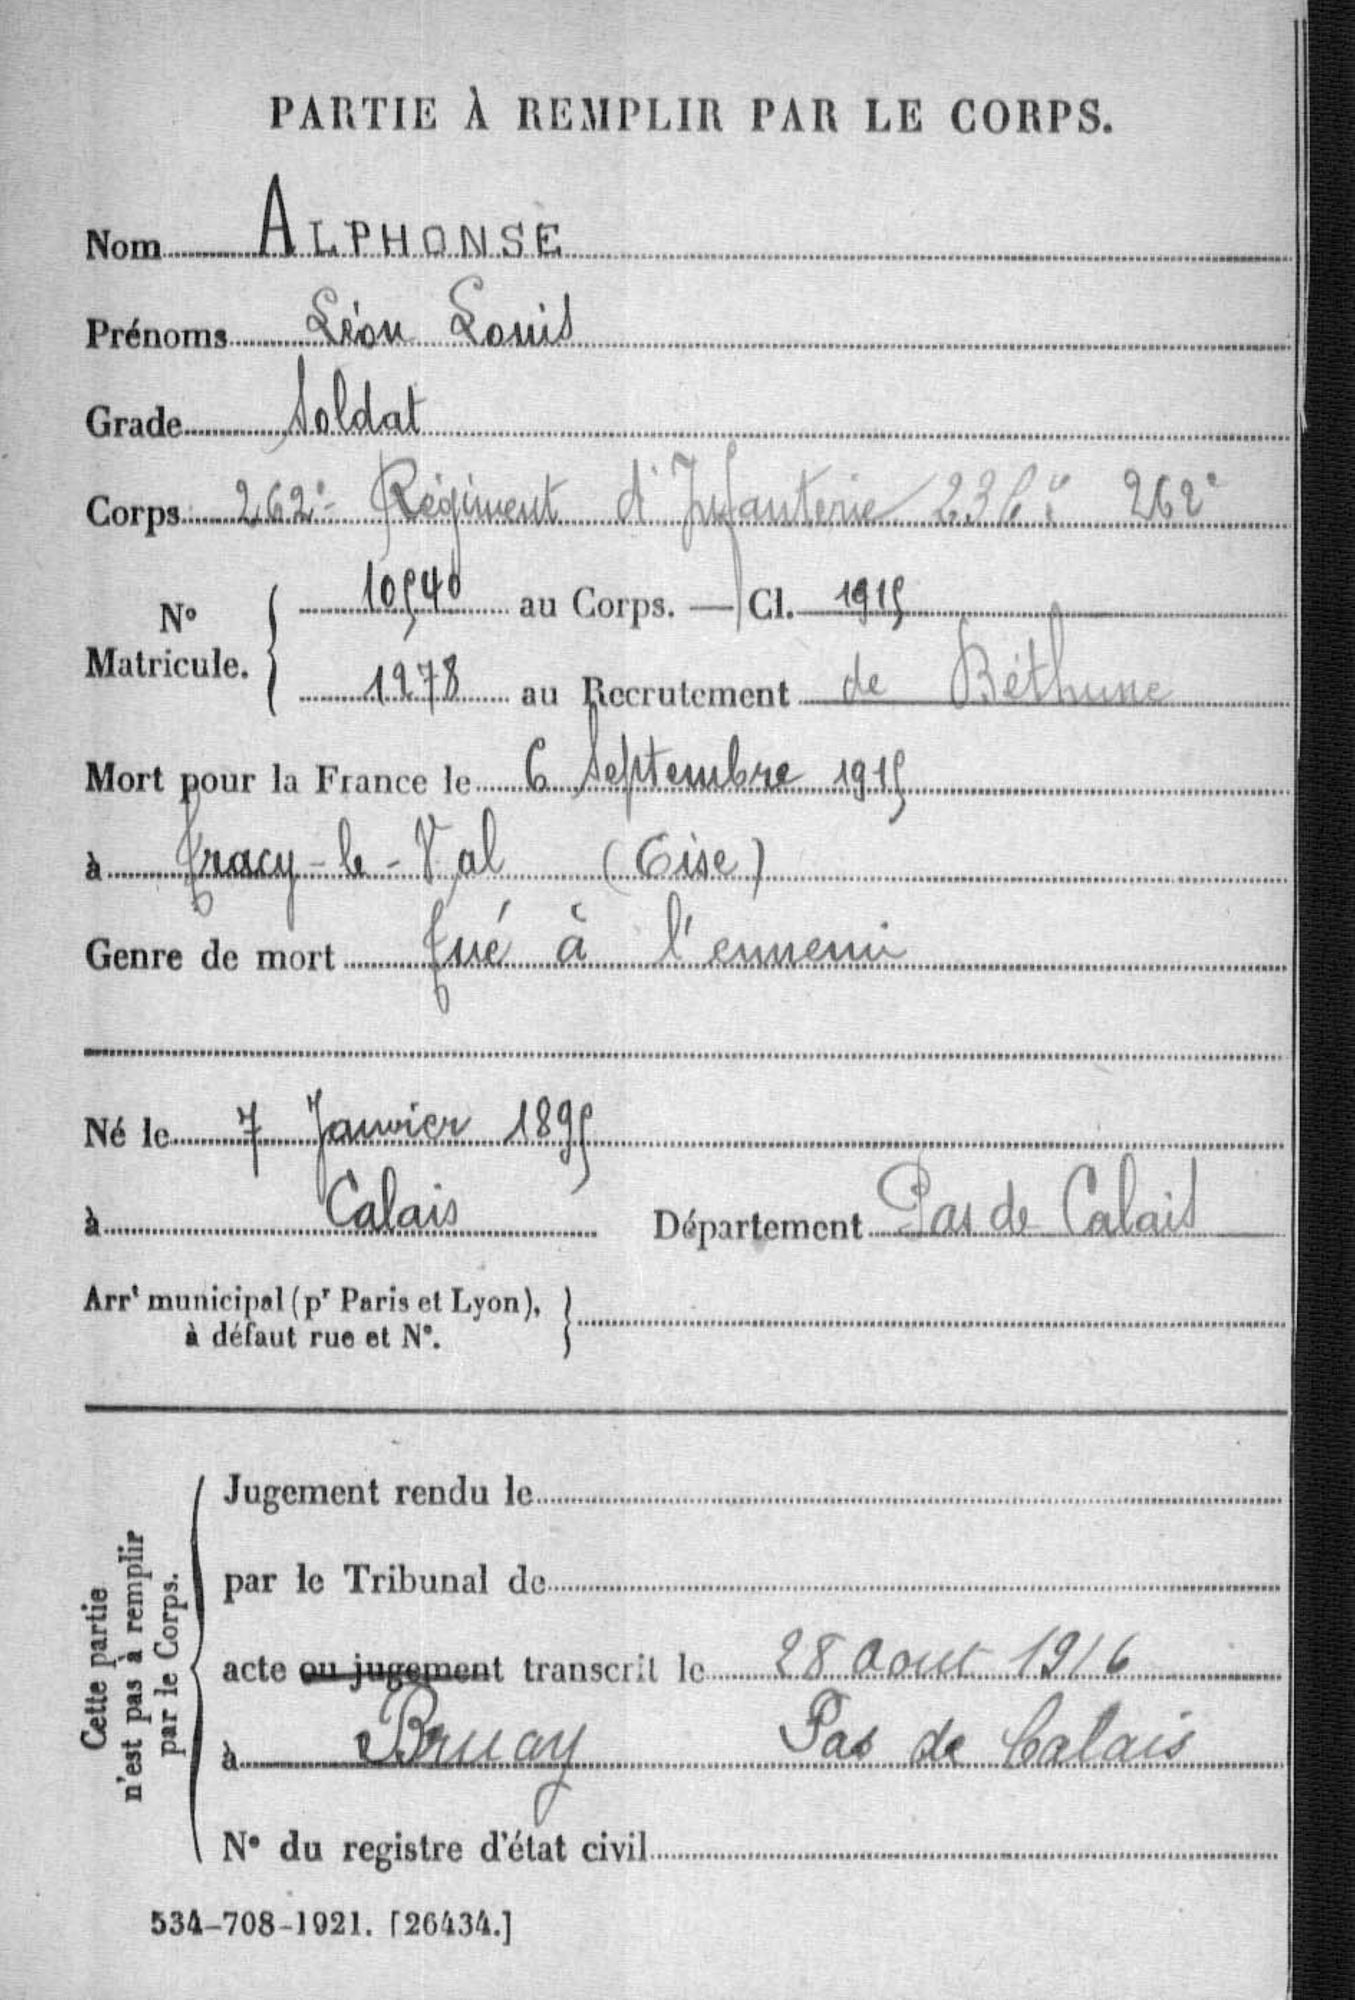 PARTIE À REMPLIR PAR LE CORPS.
Nom ALPHONSE
Prénoms Léon Louis
Grade Soldat
Corps 262e Régiment d'Infanterie 262e
10540 au Corps. — Cl. 1915
No Matricule.
1278 au Recrutement de Béthune
Mort pour la France le 6 Septembre 1915
à Tracy-le-Val (Oise)
Genre de mort Tué à l'ennemi
Né le 7 Janvier 1895
à Calais Département Pas de Calais
Arrt municipal (pr Paris et Lyon),
à défaut rue et No.
Cette partie
n'est pas à remplir
par le Corps.
Jugement rendu le
par le Tribunal de
acte ou jugement transcrit le 28 aout 1916
à Bruay Pas de Calais
No du registre d'état civil
534-708-1921. [26434.]